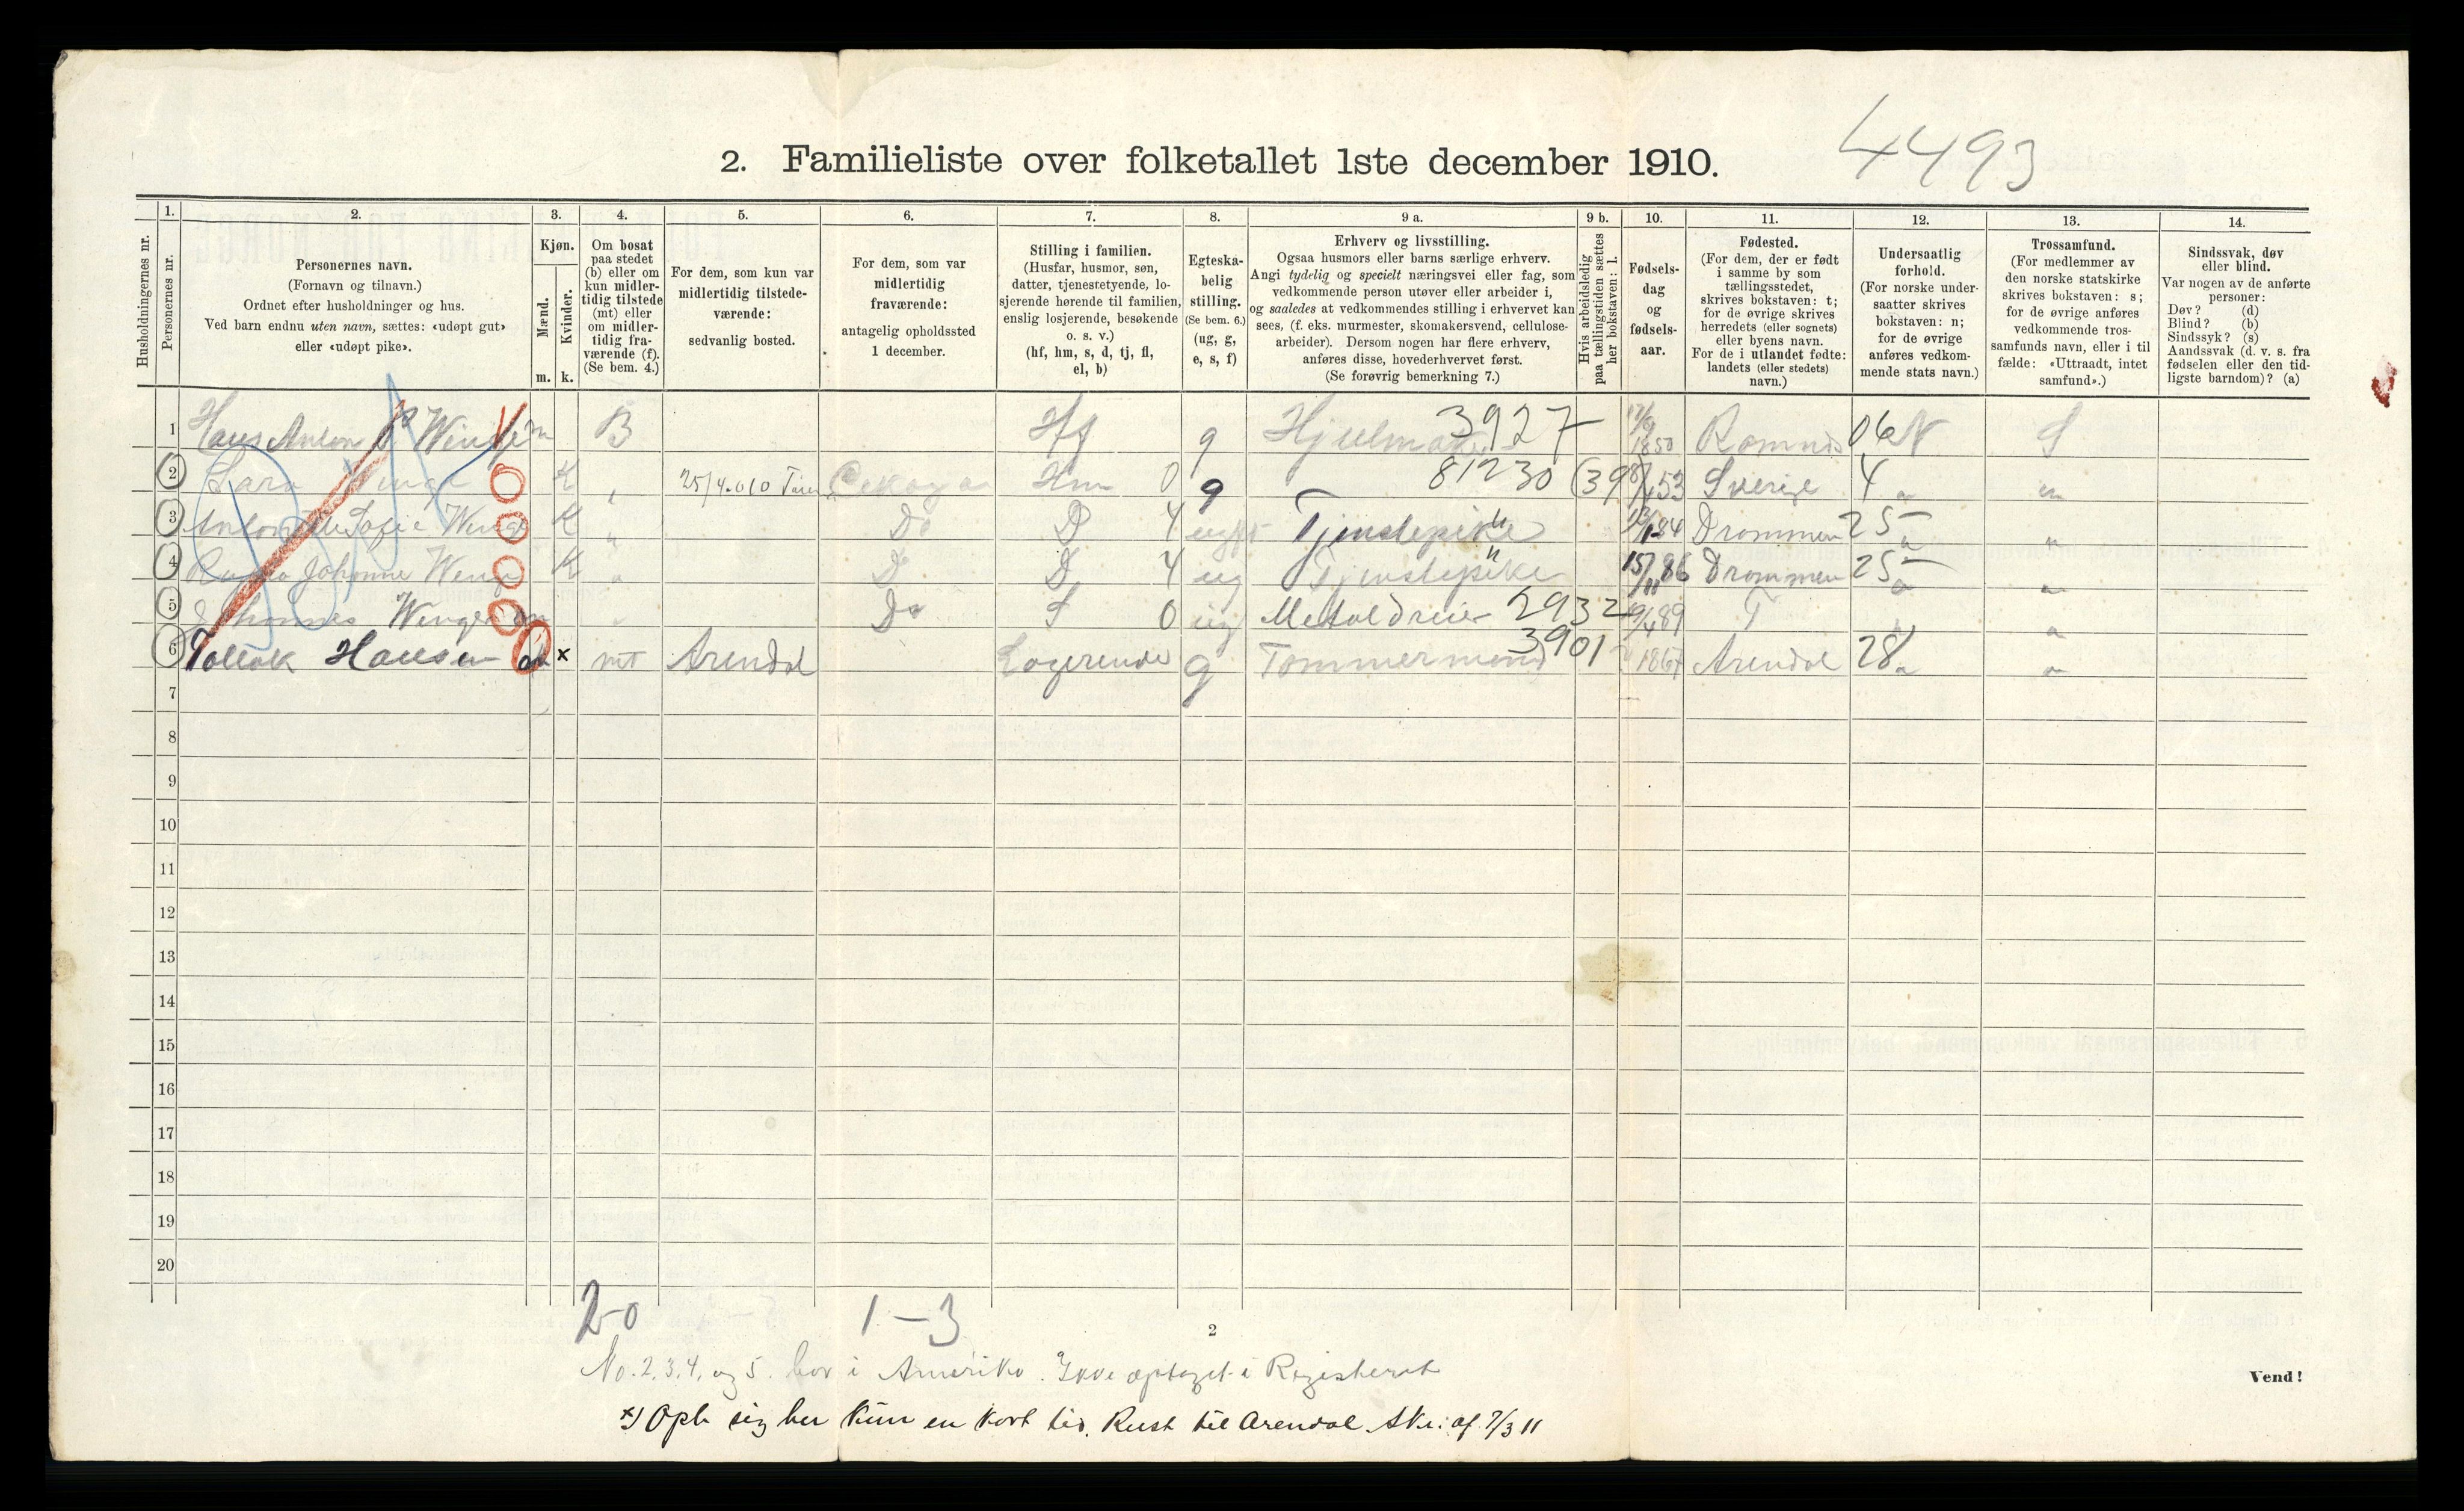 4493
2. Familieliste over folketallet 1ste december 1910.
1. 2. 3. 4. 5. 6. 7. 8. 9 a. 9 b. 10. 11. 12. 13. 14.
Husholdningernes nr.
Personernes nr.
Personernes navn.
(Fornavn og tilnavn.)
Ordnet efter husholdninger og hus.
Ved barn endnu uten navn, sættes: «udøpt gut»
eller «udøpt pike».
Kjøn.
Mænd.
Kvinder.
m. k.
Om bosat
paa stedet
(b) eller om
kun midler-
tidig tilstede
(mt) eller
om midler-
tidig fra-
værende (f).
(Se bem. 4.)
For dem, som kun var
midlertidig tilstede-
værende:
sedvanlig bosted.
For dem, som var
midlertidig
fraværende:
antagelig opholdssted
1 december.
Stilling i familien.
(Husfar, husmor, søn,
datter, tjenestetyende, lo-
sjerende hørende til familien,
enslig losjerende, besøkende
o. s. v.)
(hf, hm, s, d, tj, fl,
el, b)
Egteska-
belig
stilling.
(Se bem. 6.)
(ug, g,
e, s, f)
Erhverv og livsstilling.
Ogsaa husmors eller barns særlige erhverv.
Angi tydelig og specielt næringsvei eller fag, som
vedkommende person utøver eller arbeider i,
og saaledes at vedkommendes stilling i erhvervet kan
sees, (f. eks. murmester, skomakersvend, cellulose-
arbeider). Dersom nogen har flere erhverv,
anføres disse, hovederhvervet først.
(Se forøvrig bemerkning 7.)
Hvis arbeidsledig
paa tællingstiden sættes
her bokstaven: l.
Fødsels-
dag
og
fødsels-
aar.
Fødested.
(For dem, der er født
i samme by som
tællingsstedet,
skrives bokstaven: t;
for de øvrige skrives
herredets (eller sognets)
eller byens navn.
For de i utlandet fødte:
landets (eller stedets)
navn.)
Undersaatlig
forhold.
(For norske under-
saatter skrives
bokstaven: n;
for de øvrige
anføres vedkom-
mende stats navn.)
Trossamfund.
(For medlemmer av
den norske statskirke
skrives bokstaven: s;
for de øvrige anføres
vedkommende tros-
samfunds navn, eller i til
fælde: «Uttraadt, intet
samfund».)
Sindssvak, døv
eller blind.
Var nogen av de anførte
personer:
Døv? (d)
Blind? (b)
Sindssyk? (s)
Aandssvak (d. v. s. fra
fødselen eller den tid-
ligste barndom)? (a)
1 Hans Anton Winge m B Hf g 3927 1850 06 N S
2 Winge 0 K " 25/4.010 Hm 0 g 81230 (39) 53 Sverige 4 " "
3 Sofie Winge 0 K " Do D 4 Tjenstepike " 84 Drammen 25 " "
4 Johanne Winge 0 K " Do D 4 ug Tjenstepike " 15/11 86 Drammen 25 " "
5 Winge 0 m " Do S 0 ug Metaldreier 2932 89 T " "
6 Hansen 0 x mt Arendal Logerende g Tømmermand 3901 1867 Arendal 28 " "
7
8
9
10
11
12
13
14
15
16
17
18
19
20
2-0 1-3
2
No. 2, 3, 4, og 5. bor i Amerika. Ikke optaget i Registeret
Vend!
x) Oph. sig her kun en kort tid. Reist til Arendal 7/3 11